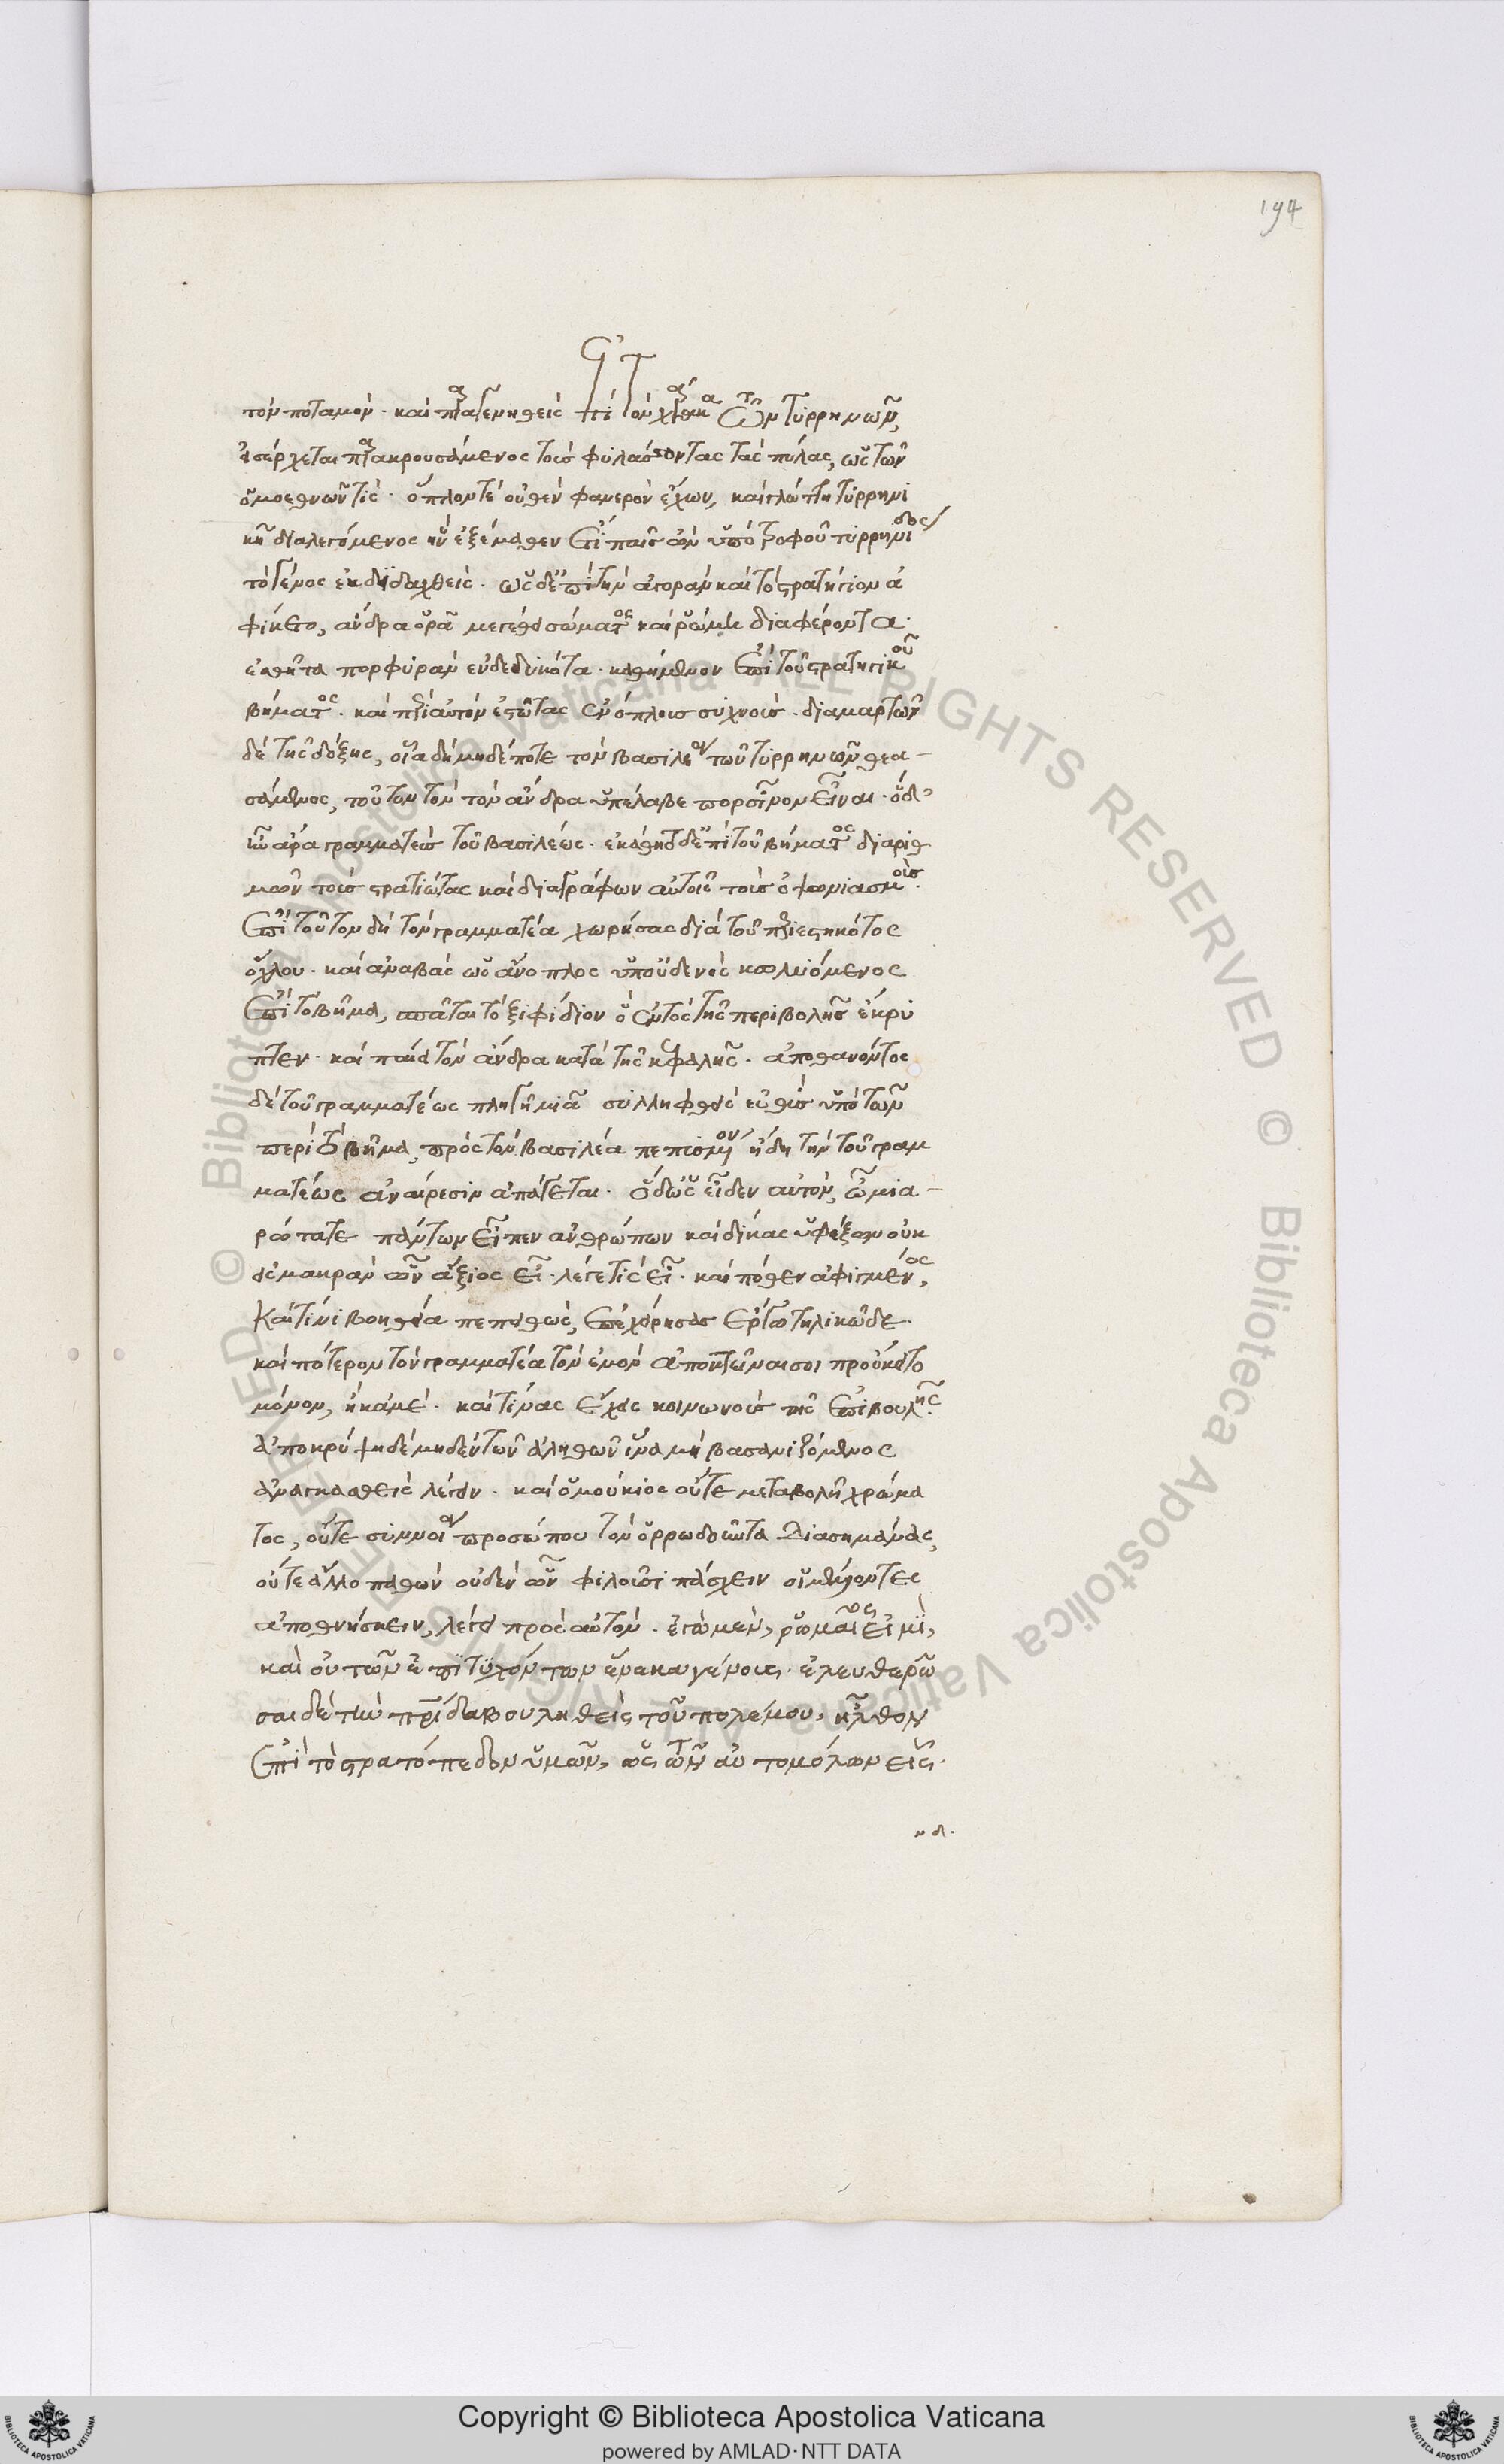 194
τὸν ποταμόν· καὶ παραγενηθεὶς ἐπὶ τὸν χάρακα τῶν τυρρηνῶν,
εἰσέρχεται παρακρουσάμενος τοὺς φυλάσσοντας τὰς πύλας, ὡς τῶν
ὁμοεθνῶν τίς· ὅπλον τὲ οὐθὲν φανερὸν ἔχων, καὶ γλώττη τυρρηνι
κῆ διαλεγόμενος ἣν ἐξέμαθεν ἔτι παῖς ὢν ὑπὸ τροφοῦ τυρρηνίδος
τὸ γένος ἐκδιδαχθείς· ὡς δ' ἐπὶ τὴν ἀγορὰν καὶ τὸ στρατήγιον ἀ
φίκετο, ἄνδρα ὁρᾶ μεγέθει σώματος καὶ ῥώμη διαφέροντα·
ἐσθῆτα πορφυρὰν ἐνδεδυκότα· καθήμενον ἐπὶ τοῦ στρατηγικοῦ
βήματος· καὶ περὶ αὐτὸν ἑστῶτας ἐν ὅπλοις συχνούς· διαμαρτὼν
δὲ τῆς δόξης, οἷα δὴ μηδέποτε τὸν βασιλέα τῶν τυρρηνῶν θεα-
σάμενος, τοῦτον τὸν τὸν ἄνδρα ὑπέλαβε πορσῖνον εἶναι· ὁ δ'
ἦν ἄρα γραμματεὺς τοῦ βασιλέως· ἐκάθητο δ' ἐπὶ τοῦ βήματος διαριθ
μῶν τοὺς στρατιώτας καὶ διαγράφων αὐτοῖς τοὺς ὀψωνιασμοὺς.
ἐπὶ τοῦτον δὴ τὸν γραμματέα χωρήσας διὰ τοῦ περιεστηκότος
ὄχλου· καὶ ἀναβὰς ὡς ἄνοπλος ὑπ' οὐδενὸς κωλυόμενος
ἐπὶ τὸ βῆμα, σπᾶται τὸ ξιφίδιον ὃ ἐντὸς τῆς περιβολῆς ἔκρυ
πτεν· καὶ παίει τὸν ἄνδρα κατὰ τῆς κεφαλῆς· ἀποθανόντος
δὲ τοῦ γραμματέως πληγῆ μιᾶ συλληφθεὶς εὐθὺς ὑπὸ τῶν
περὶ τὸ βῆμα, πρὸς τὸν βασιλέα πεπυσμένον ἤδη τὴν τοῦ γραμ
ματέως ἀναίρεσιν ἀπάγεται· ὁ δ' ὡς εἶδεν αὐτόν, ὦ μια-
ρώτατε πάντων εἶπεν ἀνθρώπων καὶ δίκας ὑφέξων οὐκ
εἰς μακρὰν ὧν ἄξιος εἶ· λέγε τίς εἶ· καὶ πόθεν ἀφιγμένος,
καὶ τίνι βοηθεία πεποιθὼς, ἐπεχείρησας ἔργω τηλικῶδε·
καὶ πότερον τὸν γραμματέα τὸν ἐμὸν ἀποκτεῖναι σοι προὔκειτο
μόνον, ἢ κἀμέ· καὶ τίνας ἔχεις κοινωνοὺς τῆς ἐπιβουλῆς.
ἀποκρύψη δὲ μηδὲν τῶν ἀληθῶν ἵνα μὴ βασανιζόμενος
ἀναγκασθεὶς λέγειν· καὶ ὁ μούκιος οὔτε μεταβολῆ χρώμα
τος, οὔτε συννοία προσώπου τὸν ὀρρωδοῦντα διασημάνας,
οὔτε ἄλλο παθὼν οὐδὲν ὧν φιλοῦσι πάσχειν οἱ μέλλοντες
ἀποθνήσκειν, λέγει πρὸς αὐτόν· ἐγὼ μὲν, ῥωμαῖος εἰμὶ,
καὶ οὐ τῶν ἐπιτυχόντων ἕνεκα γένους· ἐλευθερῶ
σαι δὲ τὴν πατρίδα βουληθεὶς τοῦ πολέμου, ἦλθον
ἐπὶ τὸ στρατόπεδον ὑμῶν, ὡς τῶν αὐτομόλων εἷς.